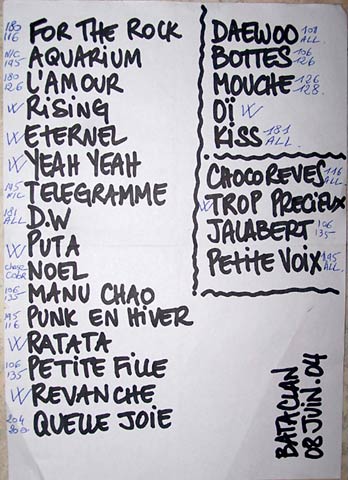 180 116 FOR THE ROCK
N/C 195 AQUARIUM
180 126 L'AMOUR
W RISING
W ETERNEL
W YEAH YEAH
195 N/C TELEGRAMME
181 ALL D.W
W PUTA
NOEL
106 135 MANU CHAO
195 116 PUNK EN HIVER
W RATATA
106 135 PETITE FILLE
W REVANCHE
204 QUELLE JOIE
DAEWOO 108 ALL.
BOTTES 106 126
MOUCHE 126 128.
OÏ W
KISS 181 ALL.
CHOCOREVES 116 ALL.
W TROP PRECIEUX
JALABERT 106 135
PETITE VOIX 195 ALL.
BATACLAN
08 JUIN.04